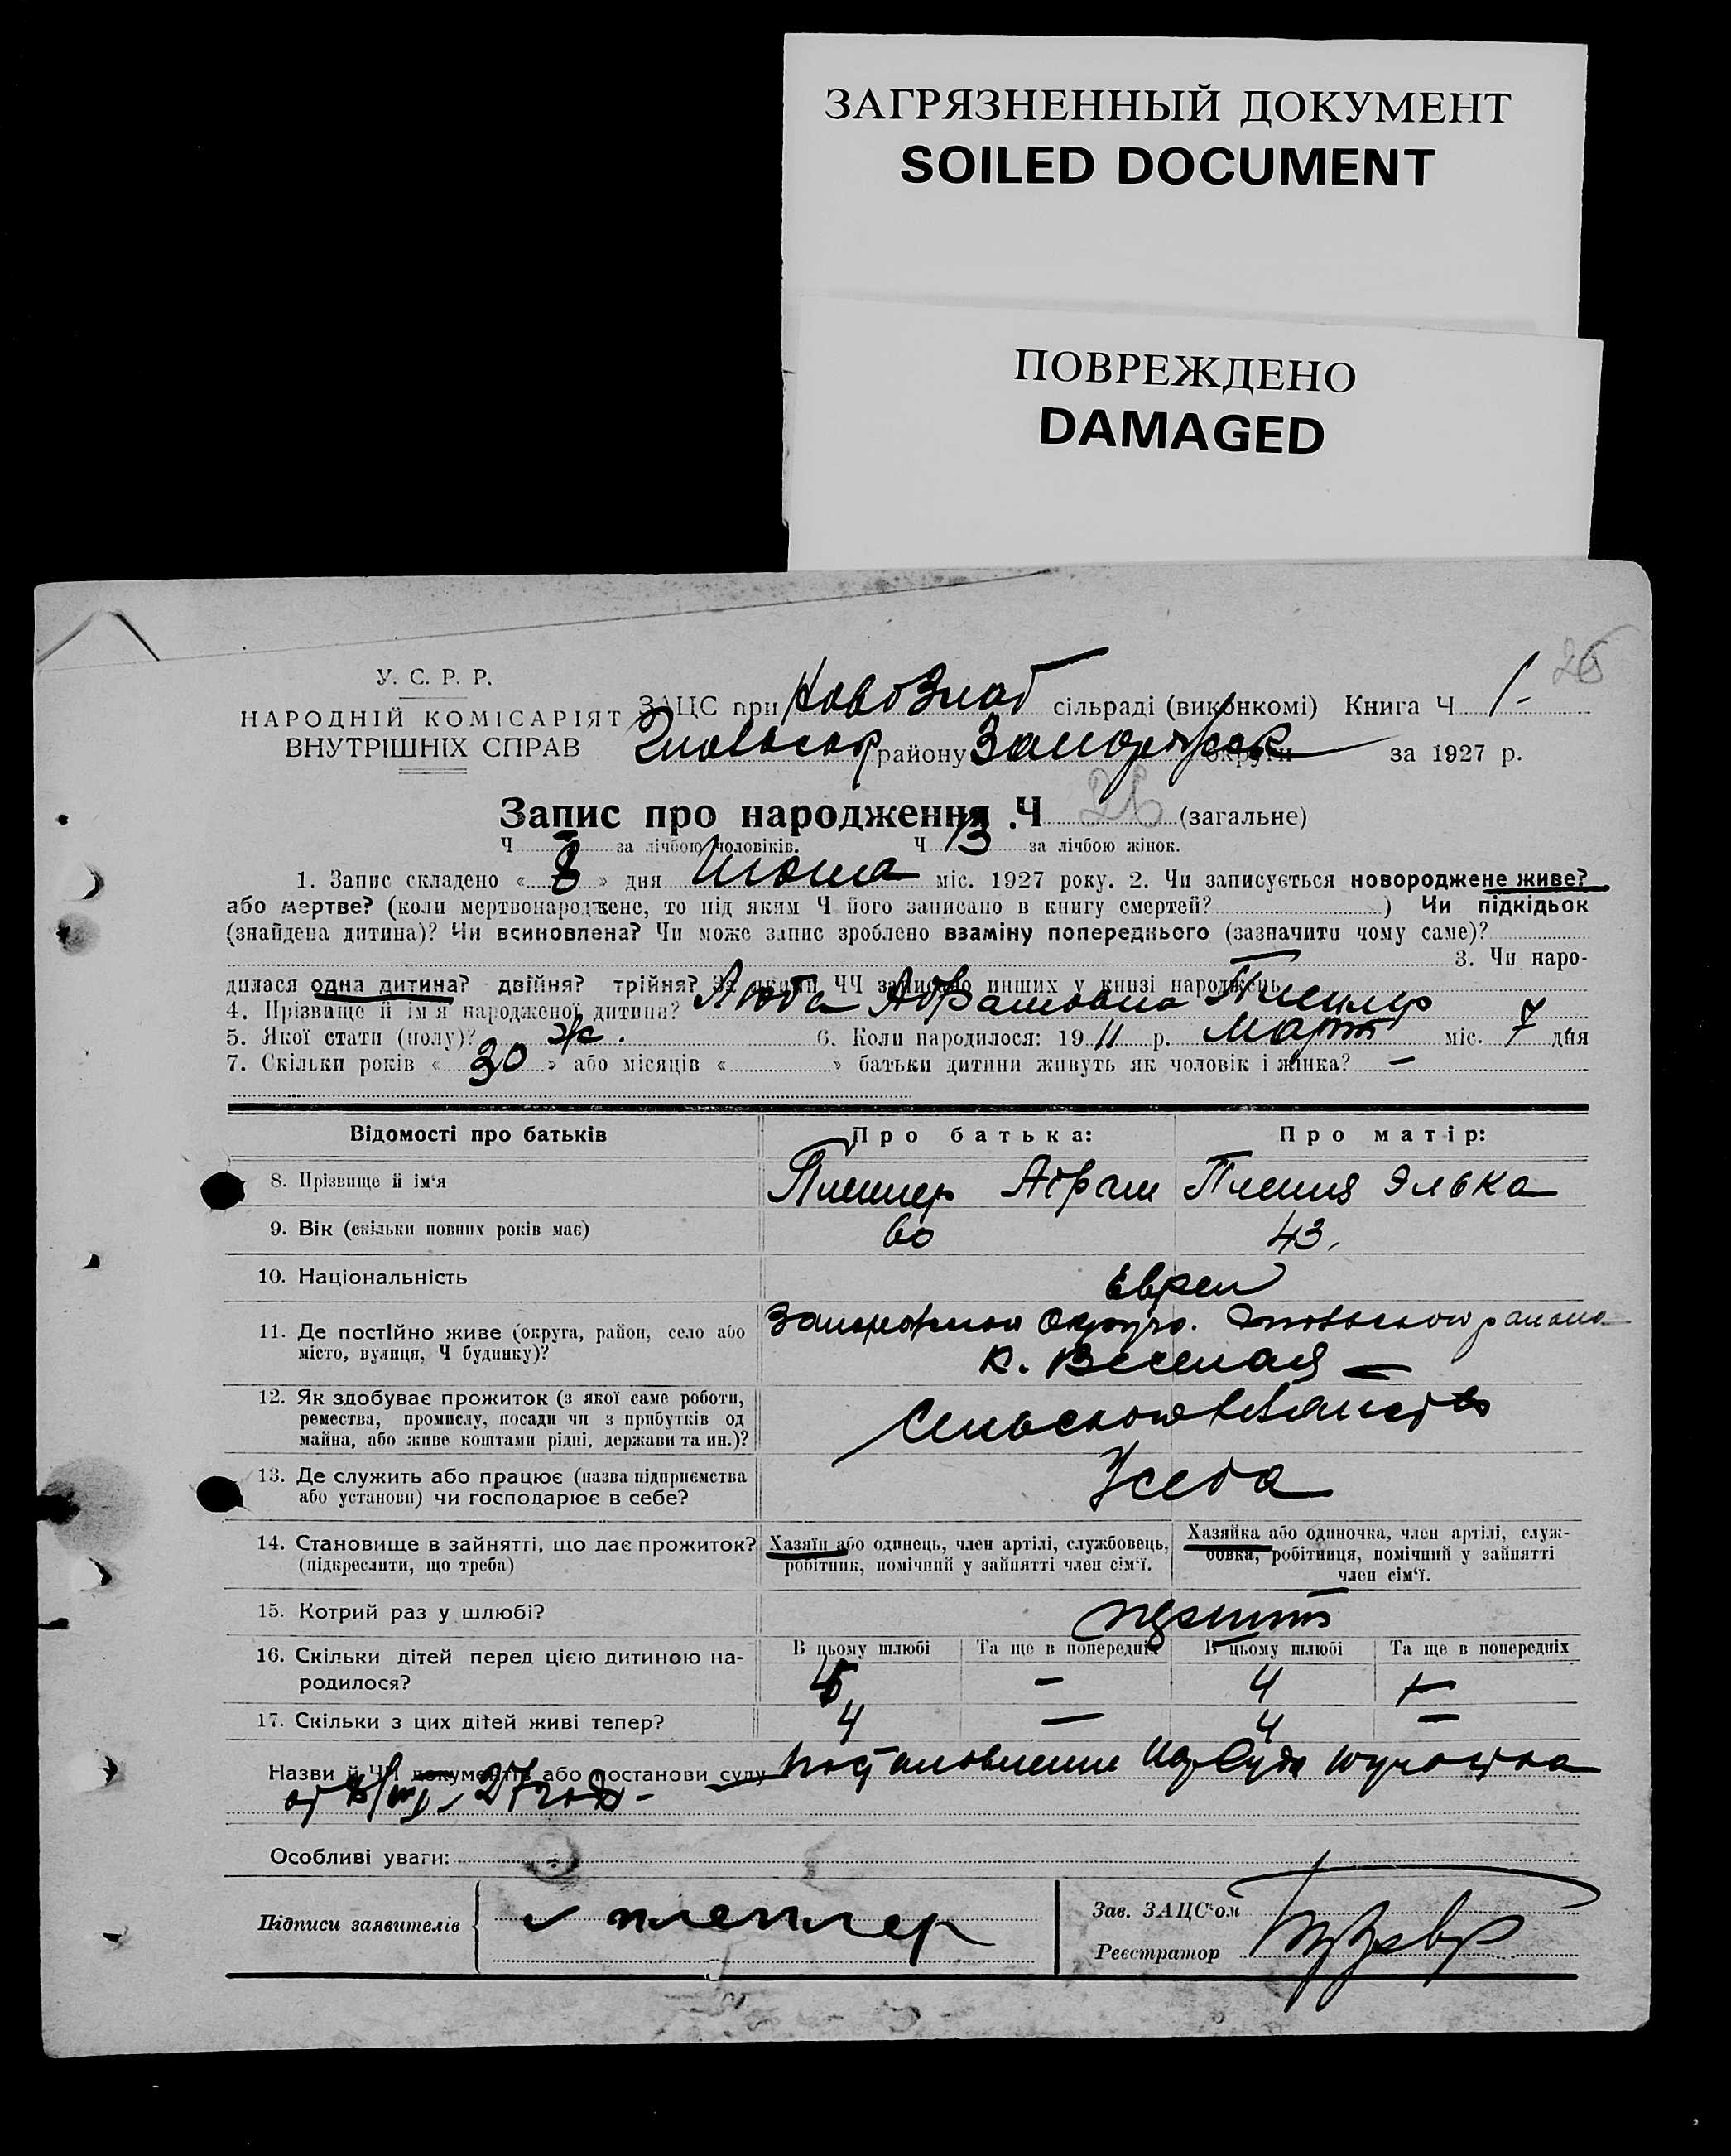 ЗАГРЯЗНЕННЫЙ ДОКУМЕНТ
SOILED DOCUMENT
ПОВРЕЖДЕНО
DAMAGED
26
У. С. Р. Р.
НАРОДНІЙ КОМІСАРІЯТ
ВНУТРІШНІХ СПРАВ
ЗАЦС при НовоЗлат сільраді (виконкомі) Книга Ч 1-
району Запорожск округи за 1927 р.
Запис про народження Ч 26 (загальне)
Ч за лічбою чоловіків. Ч 13 за лічбою жінок.
1. Запис складено « 8 » дня Июня міс. 1927 року. 2. Чи записується новороджене живе?
або мертве? (коли мертвонароджене, то під яким Ч його записано в книгу смертей? ) Чи підкідьок
(знайдена дитина)? Чи всиновлена? Чи може запис зроблено взаміну попереднього (зазначити чому саме)?
3. Чи наро-
дилася одна дитина? двійня? трійня? За якими ЧЧ записано инших у книзі народжень
4. Прізвище й ім'я народженої дитини? Люба Абрамовна Плешлер
5. Якої стати (полу)? ж. 6. Коли народилося: 19 11 р. Март міс. 7 дня
7. Скільки років « 30 » або місяців « » батьки дитини живуть як чоловік і жінка? –
Відомості про батьків Про батька: Про матір:
8. Прізвище й ім'я Абрам Элька
9. Вік (скільки повних років має) 60 43.
10. Національність Евреи
11. Де постійно живе (округа, район, село або Запорожская Округа. района
місто, вулиця, Ч будинку)? к. Веселая
12. Як здобуває прожиток (з якої саме роботи,
ремества, промислу, посади чи з прибутків од
майна, або живе коштами рідні, держави та ин.)?
13. Де служить або працює (назва підприємства У себа
або установи) чи господарює в себе?
14. Становище в зайнятті, що дає прожиток? Хазяїн або одинець, член артілі, службовець, Хазяйка або одиночка, член артілі, служ-
(підкреслити, що треба) робітник, помічний у зайнятті член сім'ї. бовка, робітниця, помічний у зайнятті
член сім'ї.
15. Котрий раз у шлюбі?
16. Скільки дітей перед цією дитиною на- В цьому шлюбі Та ще в попередніх В цьому шлюбі Та ще в попередніх
родилося? – 4 –
17. Скільки з цих дітей живі тепер? 4 – 4 –
Назви й ЧЧ документів або постанови суду Постановление НарСуда участка
от 27 года -
Особливі уваги:
Підписи заявителів
Зав. ЗАЦС'ом
Реєстратор